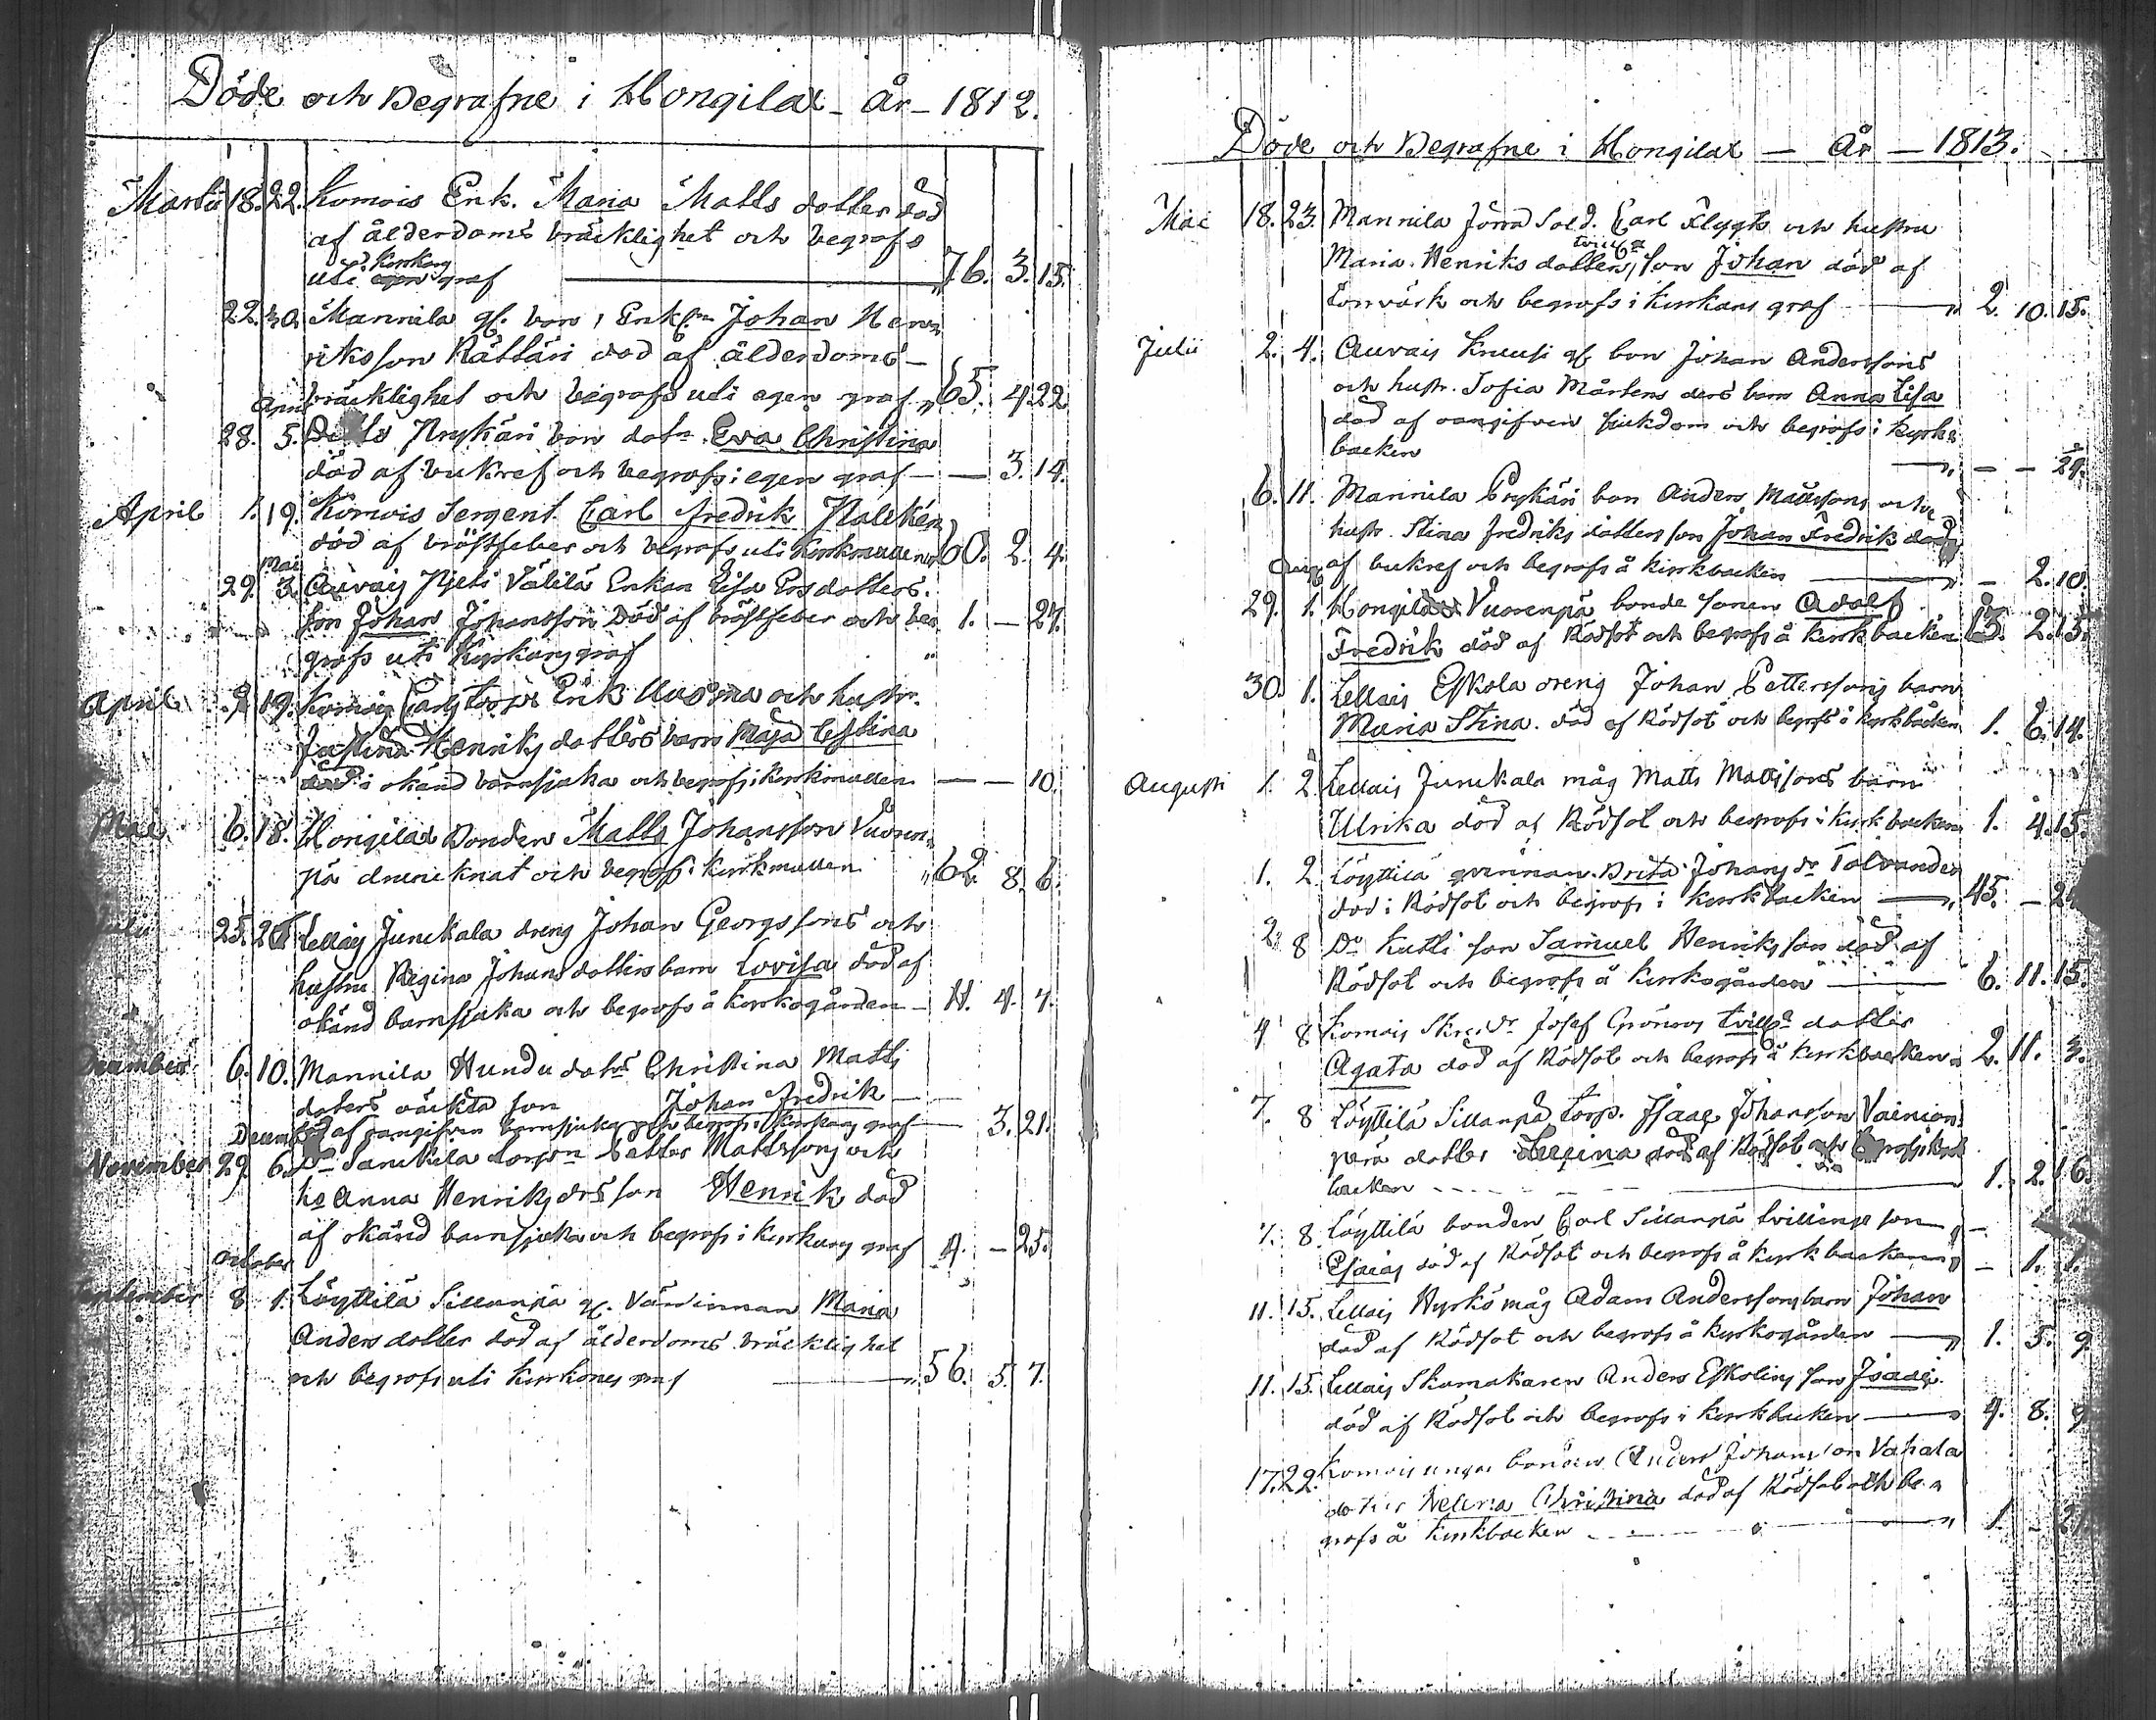 Döde och Begrafne i Hongilax - År - 1812.
Martii 18. 22. Komois Enk. Maria Matts dotter död
af ålderdoms bräcklighet och begrofs
kyrkans
uti egen graf 76. 3. 15.
22. 30. Mannila gl. bon, Enkl:n Johan Hen
riksson Rättäri död af ålderdoms
bräcklighet och begrofs uti egen graf 65. 4. 22
April
28. 5. Prykäri bon dotr. Eva Christina
död af bukref och begrofs i egen graf — 3. 14.
April 1. 19. Komois Sergent Carl Fredrik
död af bröstfeber och begrofs uti Kyrkmullen 60. 2. 4.
Mai
29. 3. Auvais Pjeti Välilä Enkan Lisa Ersdotters
son Johan Johansson Död af bröstfeber och be 1. — 27.
grofs uti Kyrkans graf
April 9 19. Komois Torpr Erik och hustr.
Justina Henriks dotters barn Maja
död i okänd barnsjuka och begrofs i Kyrkmullen — — 10.
Mai 6. 18. Hongilax Bonden Matts Johansson Vuoren
pä drunknat och begrofs i kyrkmullen 62 8. 6.
25. 26 Lellais Junckala dreng Johan Georgssons och
hustru Regina Johans dotters barn Lovisa död af
okänd barnsjuka och begrofs å kyrkogården - 11. 4. 7.
December 6. 10. Mannila Hundu dotrs Christina Matts
doters oäckta son Johan Fredrik
af oangifven barnsjuka och begrofs i Kyrkans graf — 3. 21.
Decemb
November 29. 6. Do Sanckila torpn Petter Mattssons och
hs Anna Henriks drs son Henrik död
af okänd barnsjuka och begrofs i kyrkans graf 4. — 25.
October
September 8 1. Löyttilä Sillanpä gl. Värdinnan Maria
Anders dotter död af ålderdoms bräcklighet
och begrofs uti kyrkones graf 56. 5. 7.
Döde och Begrafne i Hongilax — År — 1813.
Mai 18. 23. Mannila Jörra Sold. Carl Flygts och hustru
tvill
Maria Henriks dotters, son Johan död af
torrvärk och begrofs i kyrkans graf 2. 10. 15.
Julii 2. 4. Auvais Knuusi gl. bon Johan Anderssons
och hustr. Sofia Mårtens ders barn Anna Lisa
död af oangifven siukdom och begrofs i kyrk
backen — — 29.
6. 11. Mannila Prykäri bon Anders Mattssons och
hustr. Stina Fredriks dotters son Johan Fredrik död
af bukref och begrofs å kyrkbacken — 2. 10.
Aug
29. 1. Hongilax Vuorenpä bonde sonen Adolf
Fredrik död af Rödsot och begrofs å kyrkbacken 13. 2. 15.
30. 1. Lellais Eskola dreng Johan Petterssons barn
Maria Stina död af Rödsot och begrofs å kyrkbacken 1. 6. 14.
Augusti 1. 2 Lellais Junckala måg Matts Mattssons barn
Ulrika död af Rödsot och begrofs i kyrkbacken 1. 4. 15.
1. 2 Löyttilä qvinnan Brita Johans dr Tolvanden
död i Rödsot och begrofs i kyrkbacken 45. —
2. 8 Do Kutti son Samuel Henriksson död af
Rödsot och begrofs å kyrkogården 6. 11. 15.
4 8 Komois Skrädr Josef Grönroos tvill dotter
Agata död af Rödsot och begrofs å kyrkbacken 2. 11. 3.
7. 8 Löyttilä Sillanpä torp. Isaac Johansson Vainion
perä dotter Regina död af Rödsot och begrofs i kyrk
backen 1. 2. 16.
7. 8. Löyttilä bonden Carl Sillanpä tvillings son
Esaias död af Rödsot och begrofs å kyrkbacken — 1. 1.
11. 15. Lellais Hyrkö måg Adam Anderssons barn Johan
död af Rödsot och begrofs å kyrkogården 1. 5. 9
11. 15. Lellais Skomakaren Anders Eskolins son Isaac
död af Rödsot och begrofs i kyrkbacken 4. 8. 9
17. 22. Komois unga bonden Anders Johansson Vahala
dotter Helena Christina död af Rödsot och be
grofs å kyrkbacken 1. -